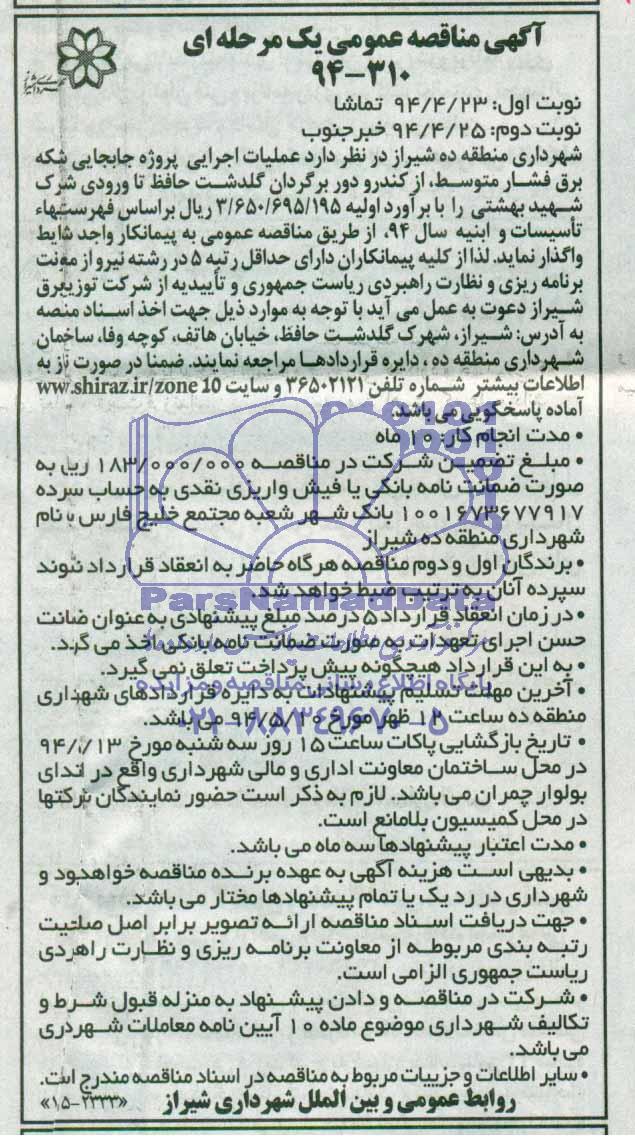 آگهی مناقصه عمومی یک مرحله ای
۹۴-۳۱۰
نوبت اول: ۹۴/۴/۲۳ تماشا
نوبت دوم: ۹۴/۴/۲۵ خبرجنوب
شهرداری منطقه ده شیراز در نظر دارد عملیات اجرایی پروژه جابجایی شبکه
برق فشار متوسط، از کندرو دور برگردان گلدشت حافظ تا ورودی شهرک
شهید بهشتی را با برآورد اولیه ۳/۶۵۰/۶۹۵/۱۹۵ ریال براساس فهرست بهاء
تأسیسات و ابنیه سال ۹۴، از طریق مناقصه عمومی به پیمانکار واجد شرایط
واگذار نماید. لذا از کلیه پیمانکاران دارای حداقل رتبه ۵ در رشته نیرو از معاونت
برنامه ریزی و نظارت راهبردی ریاست جمهوری و تأییدیه از شرکت توزیع برق
شیراز دعوت به عمل می آید با توجه به موارد ذیل جهت اخذ اسناد مناقصه
به آدرس: شیراز، شهرک گلدشت حافظ، خیابان هاتف، کوچه وفا، ساختمان
شهرداری منطقه ده، دایره قراردادها مراجعه نمایند. ضمنا در صورت نیاز به
اطلاعات بیشتر شماره تلفن ۳۶۵۰۲۱۲۱ و سایت www.shiraz.ir/zone 10
آماده پاسخگویی می باشد.
• مدت انجام کار: ۱۰ ماه
• مبلغ تضمین شرکت در مناقصه ۱۸۳/۰۰۰/۰۰۰ ریال به
صورت ضمانت نامه بانکی یا فیش واریزی نقدی به حساب سپرده
۱۰۰۱۶۷۳۶۷۷۹۱۷ بانک شهر شعبه مجتمع خلیج فارس به نام
شهرداری منطقه ده شیراز
• برندگان اول و دوم مناقصه هرگاه حاضر به انعقاد قرارداد نشوند
سپرده آنان به ترتیب ضبط خواهد شد.
ParsNamadData
• در زمان انعقاد قرارداد ۵ درصد مبلغ پیشنهادی به عنوان ضمانت
حسن اجرای تعهدات به صورت ضمانت نامه بانکی اخذ می گردد.
• به این قرارداد هیچگونه پیش پرداخت تعلق نمی گیرد.
پایگاه اطلاع رسانی مناقصه و مزایده
• آخرین مهلت تسلیم پیشنهادات به دایره قراردادهای شهرداری
منطقه ده ساعت ۱۲ ظهر مورخ ۹۴/۵/۱۰ می باشد.
۰۲۱-۸۸۳۴۹۶۷۰-۵
• تاریخ بازگشایی پاکات ساعت ۱۵ روز سه شنبه مورخ
در محل ساختمان معاونت اداری و مالی شهرداری واقع در ابتدای
بولوار چمران می باشد. لازم به ذکر است حضور نمایندگان شرکتها
در محل کمیسیون بلامانع است.
• مدت اعتبار پیشنهادها سه ماه می باشد.
• بدیهی است هزینه آگهی به عهده برنده مناقصه خواهد بود و
شهرداری در رد یک یا تمام پیشنهادها مختار می باشد.
• جهت دریافت اسناد مناقصه ارائه تصویر برابر اصل صلاحیت
رتبه بندی مربوطه از معاونت برنامه ریزی و نظارت راهبردی
ریاست جمهوری الزامی است.
• شرکت در مناقصه و دادن پیشنهاد به منزله قبول شرط و
تکالیف شهرداری موضوع ماده ۱۰ آیین نامه معاملات شهرداری
می باشد.
• سایر اطلاعات و جزییات مربوط به مناقصه در اسناد مناقصه مندرج است.
روابط عمومی و بین الملل شهرداری شیراز
«۱۵-۲۳۳۳»